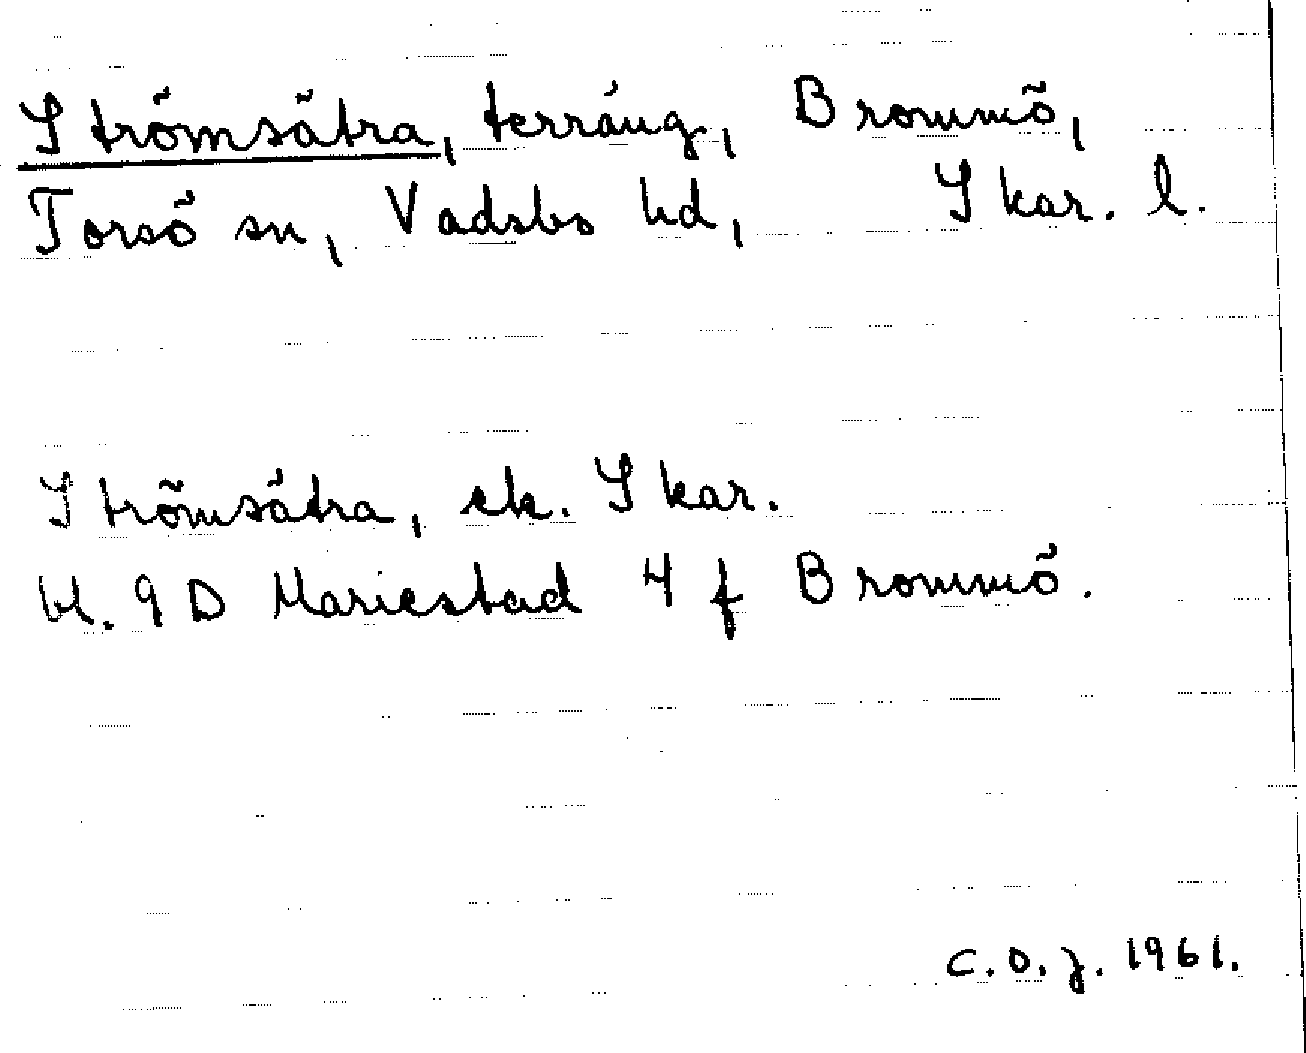 Strömsätra, terräng, Brommö,
Torsö sn, Vadsbo hd, Skar. l.
Strömsätra, ek. Skar.
bl. 9 D Mariestad 4 f Brommö.
C.O.J. 1961.